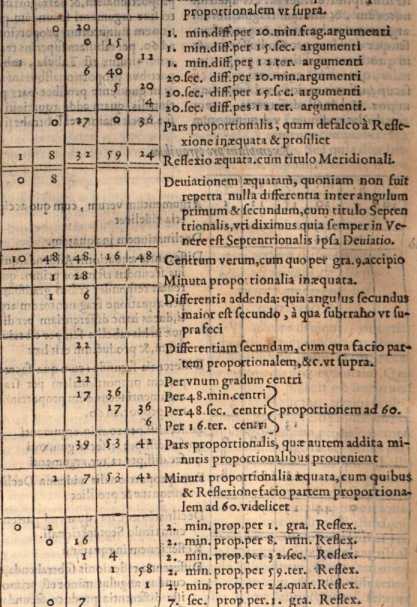 proportionalem vt supra.
0 20 1. min.diff.per 20.min.frag.argumenti
0 15 1. min.diff.per 15.sec. argumenti
0 12 1. min.diff.per 12 ter. argumenti
6 40 20.sec. diff.per 20.min.argumenti
5 20 20.sec. diff.per 15.sec. argumenti
4 20.sec. diff.pes 12 ter. argumenti.
0 27 0 36 Pars proportionalis, quam defalco à Refle-
xione inæquata & prosiliet
1 8 32 59 24 Reflexio æquata.cum titulo Meridionali.
0 8 Deuiationem æquatam, quoniam non fuit
reperta nulla differentia inter angulum
primum & secundum,cum titulo Septen
trionalis,vti diximus quia semper in Ve-
nére est Septentrionalis ipsa Deuiatio.
10 48 48 16 48 Centrum verum,cum quo per gra.9,accipio
1 28 Minuta propo tionalia inæquata.
1 6 Differentia addenda: quia angulus secundus
maior est secundo, à qua subtraho vt su-
pra feci
22 Differentiam secundam, cum qua facio par-
tem proportionalem,&c.vt supra.
22 Per vnum gradum centri
17 36 Per 48.min.centri
17 36 Per 48.sec. centri proportionem ad 60.
6 Per 16.ter. centri
39 53 42 Pars proportionalis, quæ autem addita mi-
nutis proportionalibus prouenient
2 7 53 42 Minuta proportionalia æquata,cum quibus
& Reflexione facio partem proportiona-
lem ad 60.videlicet
0 2 2. min.prop.per 1. gra. Reflex.
0 16 2. min.prop.per 8. min. Reflex.
1 4 2. min.prop.per 32.sec. Reflex.
1 58 2. min.prop.per 59.ter. Reflex.
1 2. min.prop.per 24.quar.Reflex.
0 7 7. sec. prop.per.1. gra. Reflex.